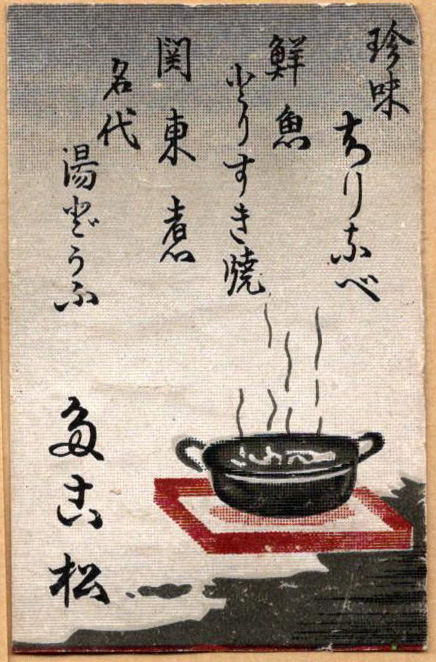 珍味
ちりなべ
鮮魚
とりすき焼
関東煮
名代
湯どうふ
多古松